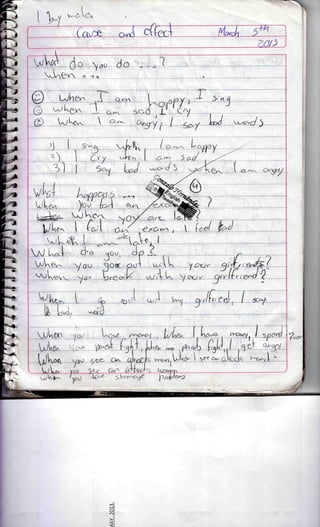 I buy
Cause and effect March 5th
2013
What do you do ... ?
when ...
when I am happy, I sing
when I am sad, I cry
when I am angry, I say bad words
1) I sing when I am happy
2) I cry when I am sad
3) I say bad words when I am angry
What happens ...
when you fail an exam ?
When you are late ?
When I fail an exam, I feel bad
when I am late, I
What do you do ?
When you go out with your girlfriend?
When you break with your girlfriend?
When I go out with my girlfriend, I say
bad word
When you have money, When I have money, I spend it
When your parents fight, when my parents fight, I get angry
When you see an attractive man, When I see an attractive man, I
When you see an attractive woman
when you have stomach problems
MAY 2013